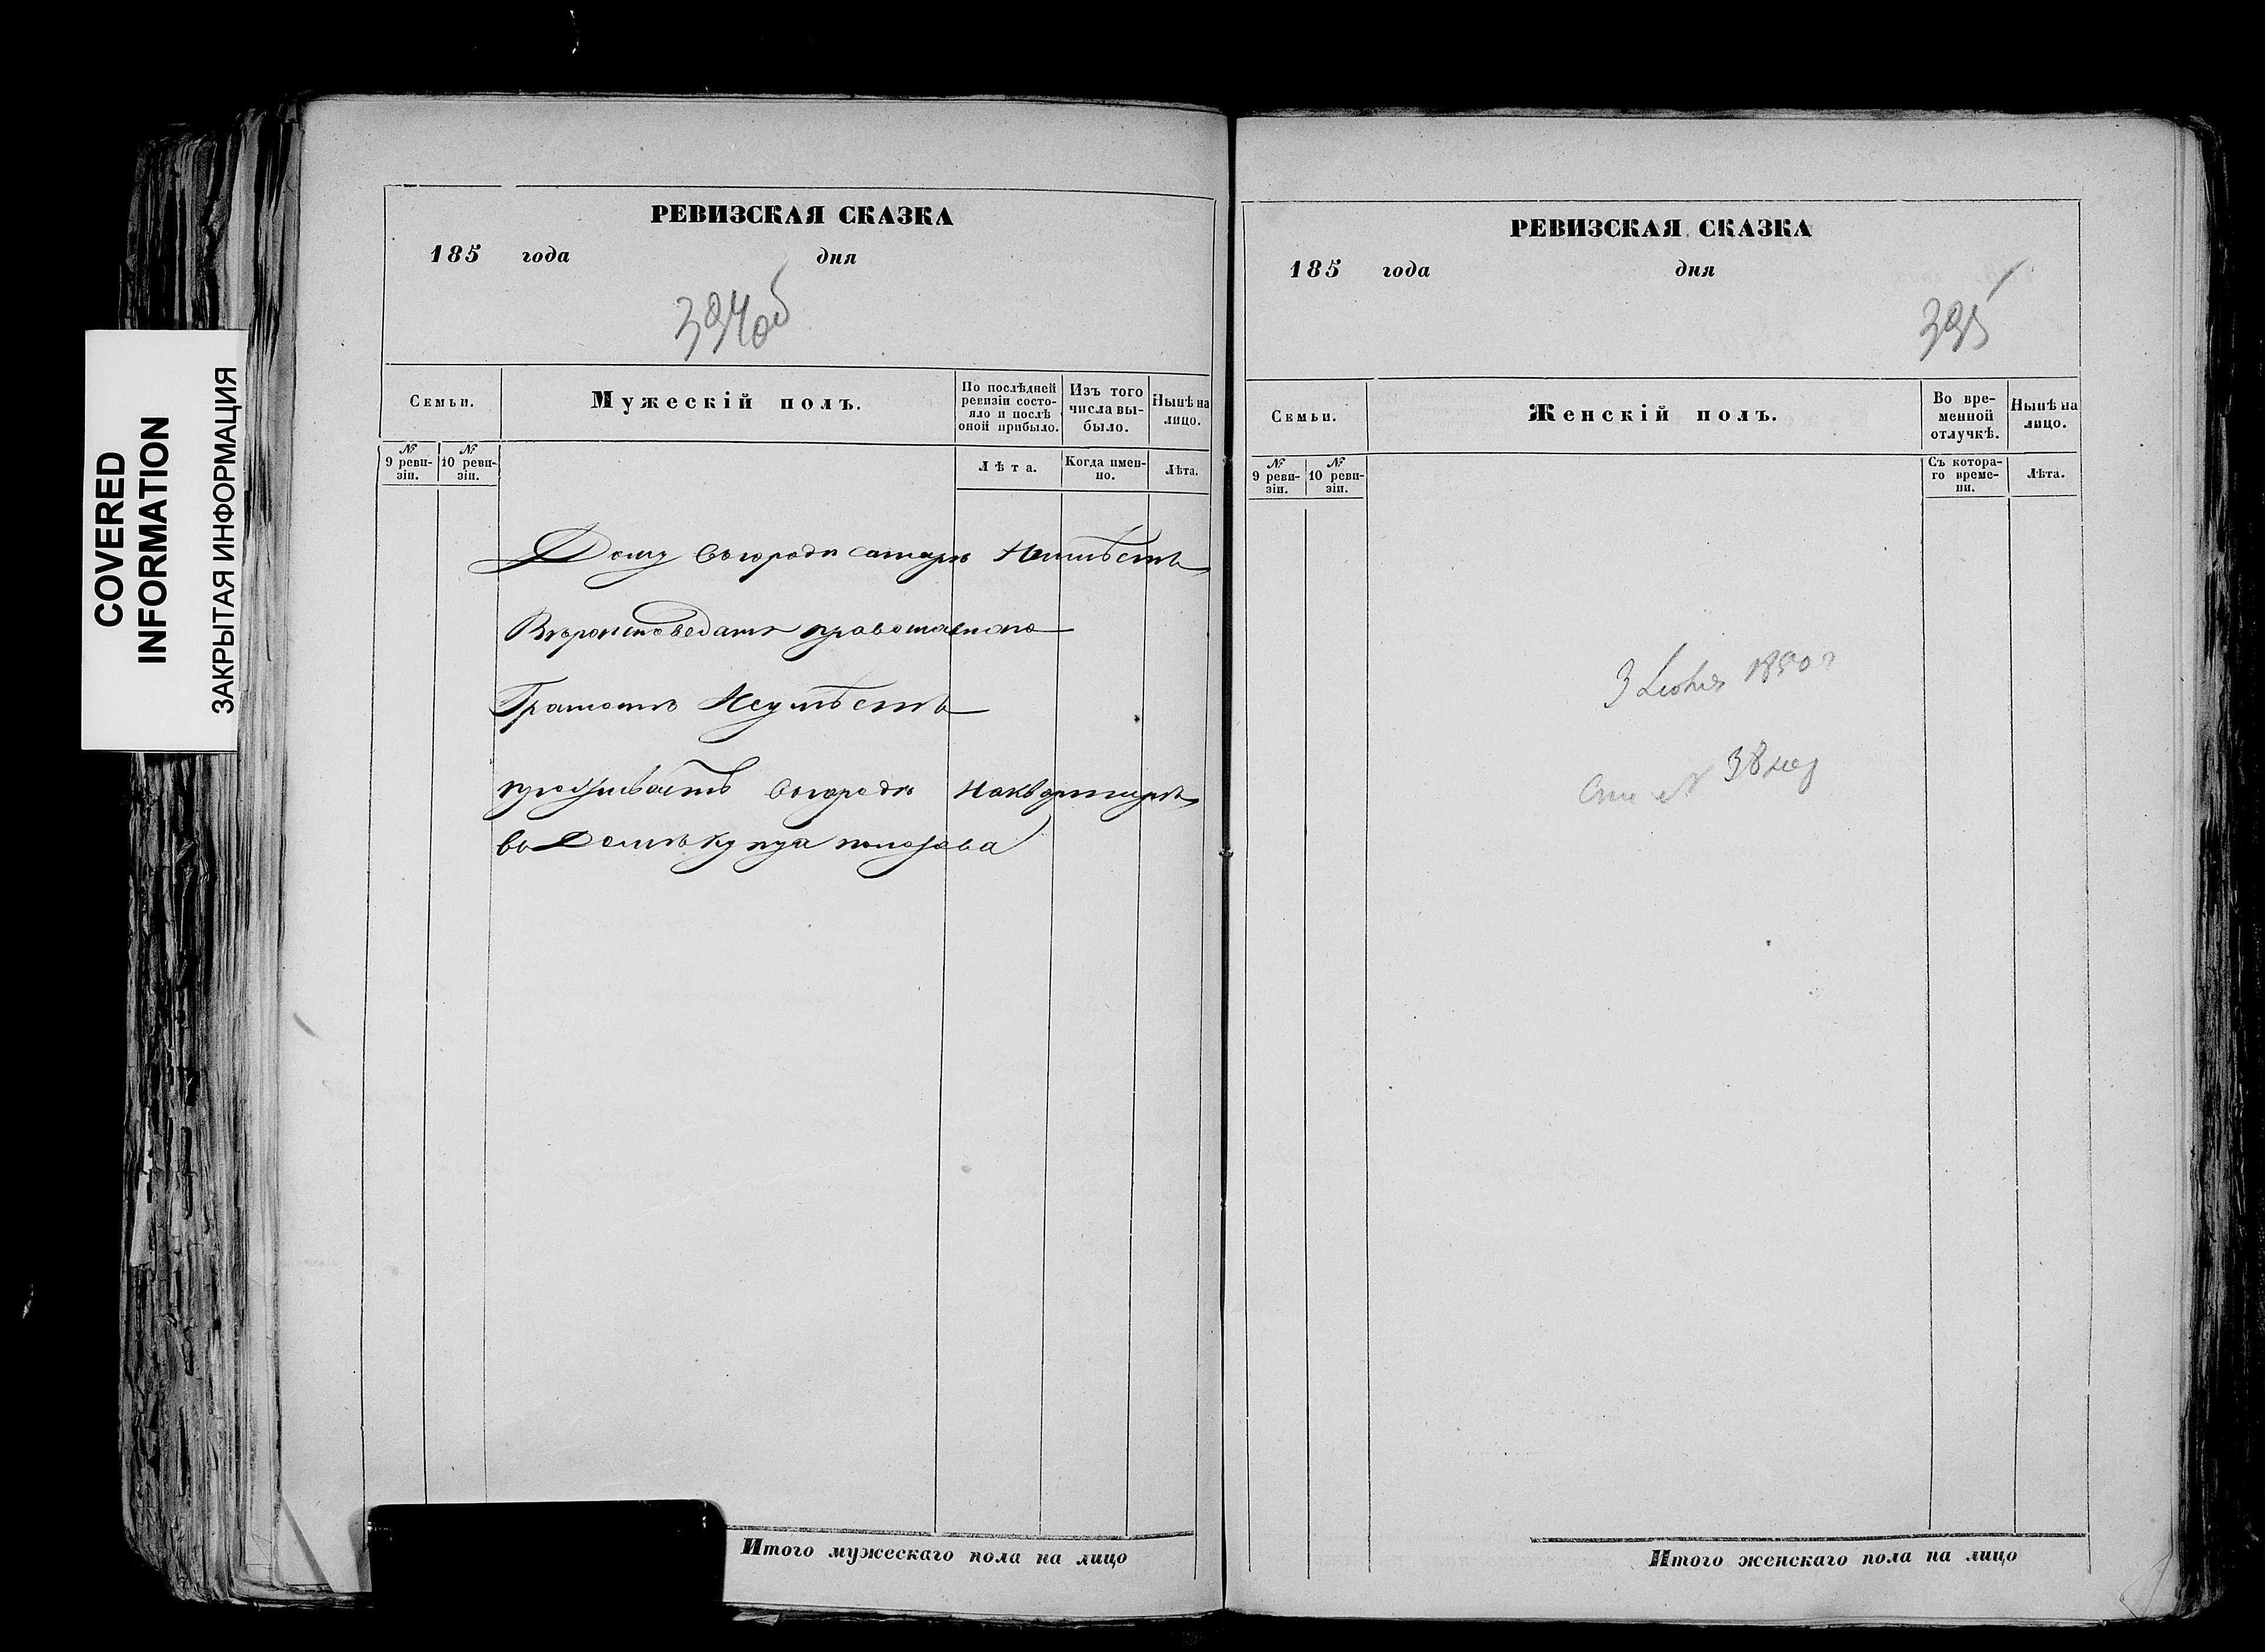 COVERED
INFORMATION
ЗАКРЫТАЯ ИНФОРМАЦИЯ
РЕВИЗСКАЯ СКАЗКА
185 года дня
394об
Семьи.
Мужескій полъ.
По послѣдней ревизіи состояло и послѣ оной прибыло.
Изъ того числа выбыло.
Нынѣ на лицо.
№ 9 ревизіи.
№ 10 ревизіи.
Лѣта.
Когда именно.
Лѣта.
Дому въ городѣ самарѣ Неимѣетъ
Вѣроисповеданія православнаго
Грамотѣ Неумѣетъ
проживаетъ въ городѣ Наквартирѣ
въ Домѣ купца
Итого мужескаго пола на лицо
РЕВИЗСКАЯ СКАЗКА
185 года дня
395
Семьи.
Женскій полъ.
Во временной отлучкѣ.
Нынѣ на лицо.
№ 9 ревизіи.
№ 10 ревизіи.
Съ котораго времени.
Лѣта.
3
38
Итого женскаго пола на лицо